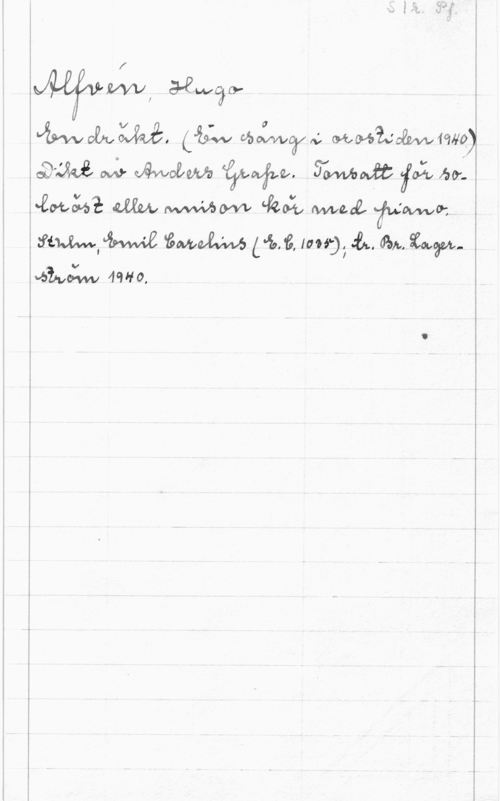 Alfvén, Hugo
Endräkt. (En sång i orostiden 1940)
Dikt av Anders Grape. Tonsatt för so-
loröst eller unison kör med piano.
Sthlm, Emil Carelius (E. C. 1035); tr. Br. Lager-
ström 1940.